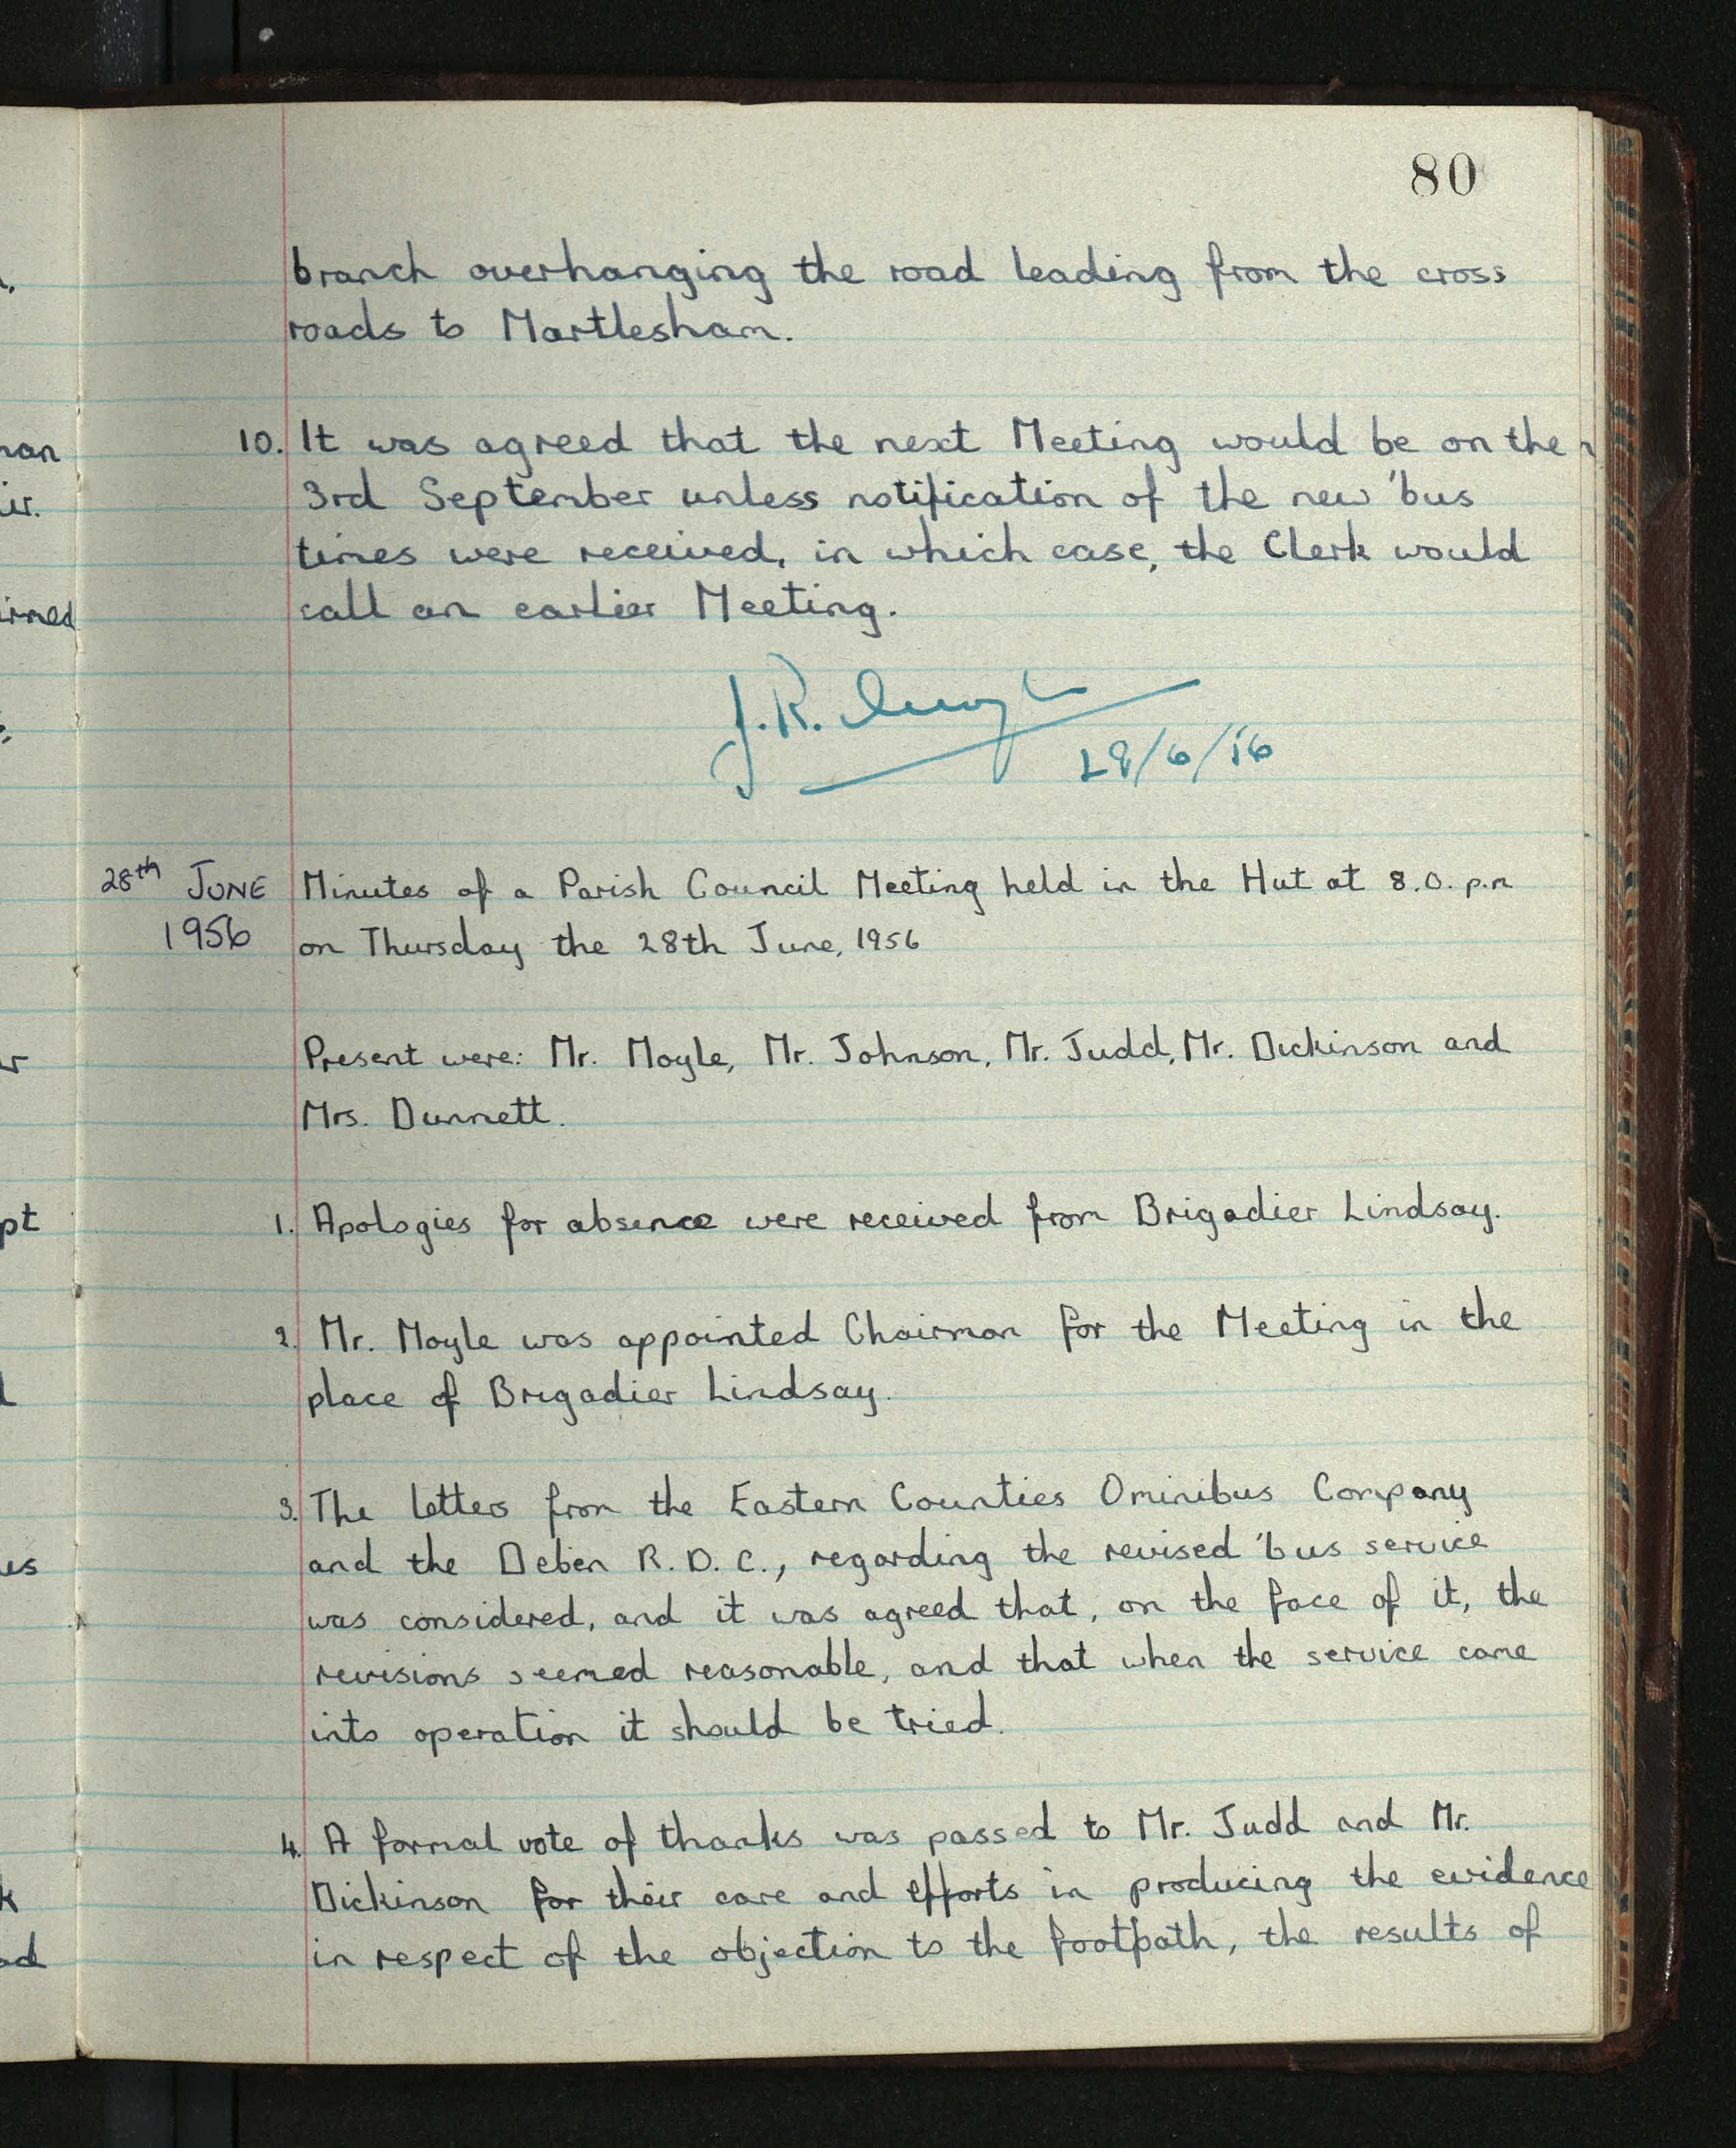 80
branch overhanging the road leading from the cross
roads to Martlesham.
10. It was agreed that the next Meeting would be on the
3rd September unless notification of the new 'bus
times were received, in which case, the Clerk would
call an earlier Meeting.
J.R.
28/6/56
28th JUNE
1956
Minutes of a Parish Council Meeting held in the Hut at 8.0. p.m
on Thursday the 28th June, 1956
Present were: Mr. Moyle, Mr. Johnson, Mr. Judd, Mr. Dickinson and
Mrs. Dunnett.
1. Apologies for absence were received from Brigadier Lindsay.
2. Mr. Moyle was appointed Chairman for the Meeting in the
place of Brigadier Lindsay.
3. The letters from the Eastern Counties Ominibus Company
and the Deben R.D.C., regarding the revised 'bus service
was considered, and it was agreed that, on the face of it, the
revisions seemed reasonable, and that when the service came
into operation it should be tried.
4. A formal vote of thanks was passed to Mr. Judd and Mr.
Dickinson for their care and efforts in producing the evidence
in respect of the objection to the footpath, the results of